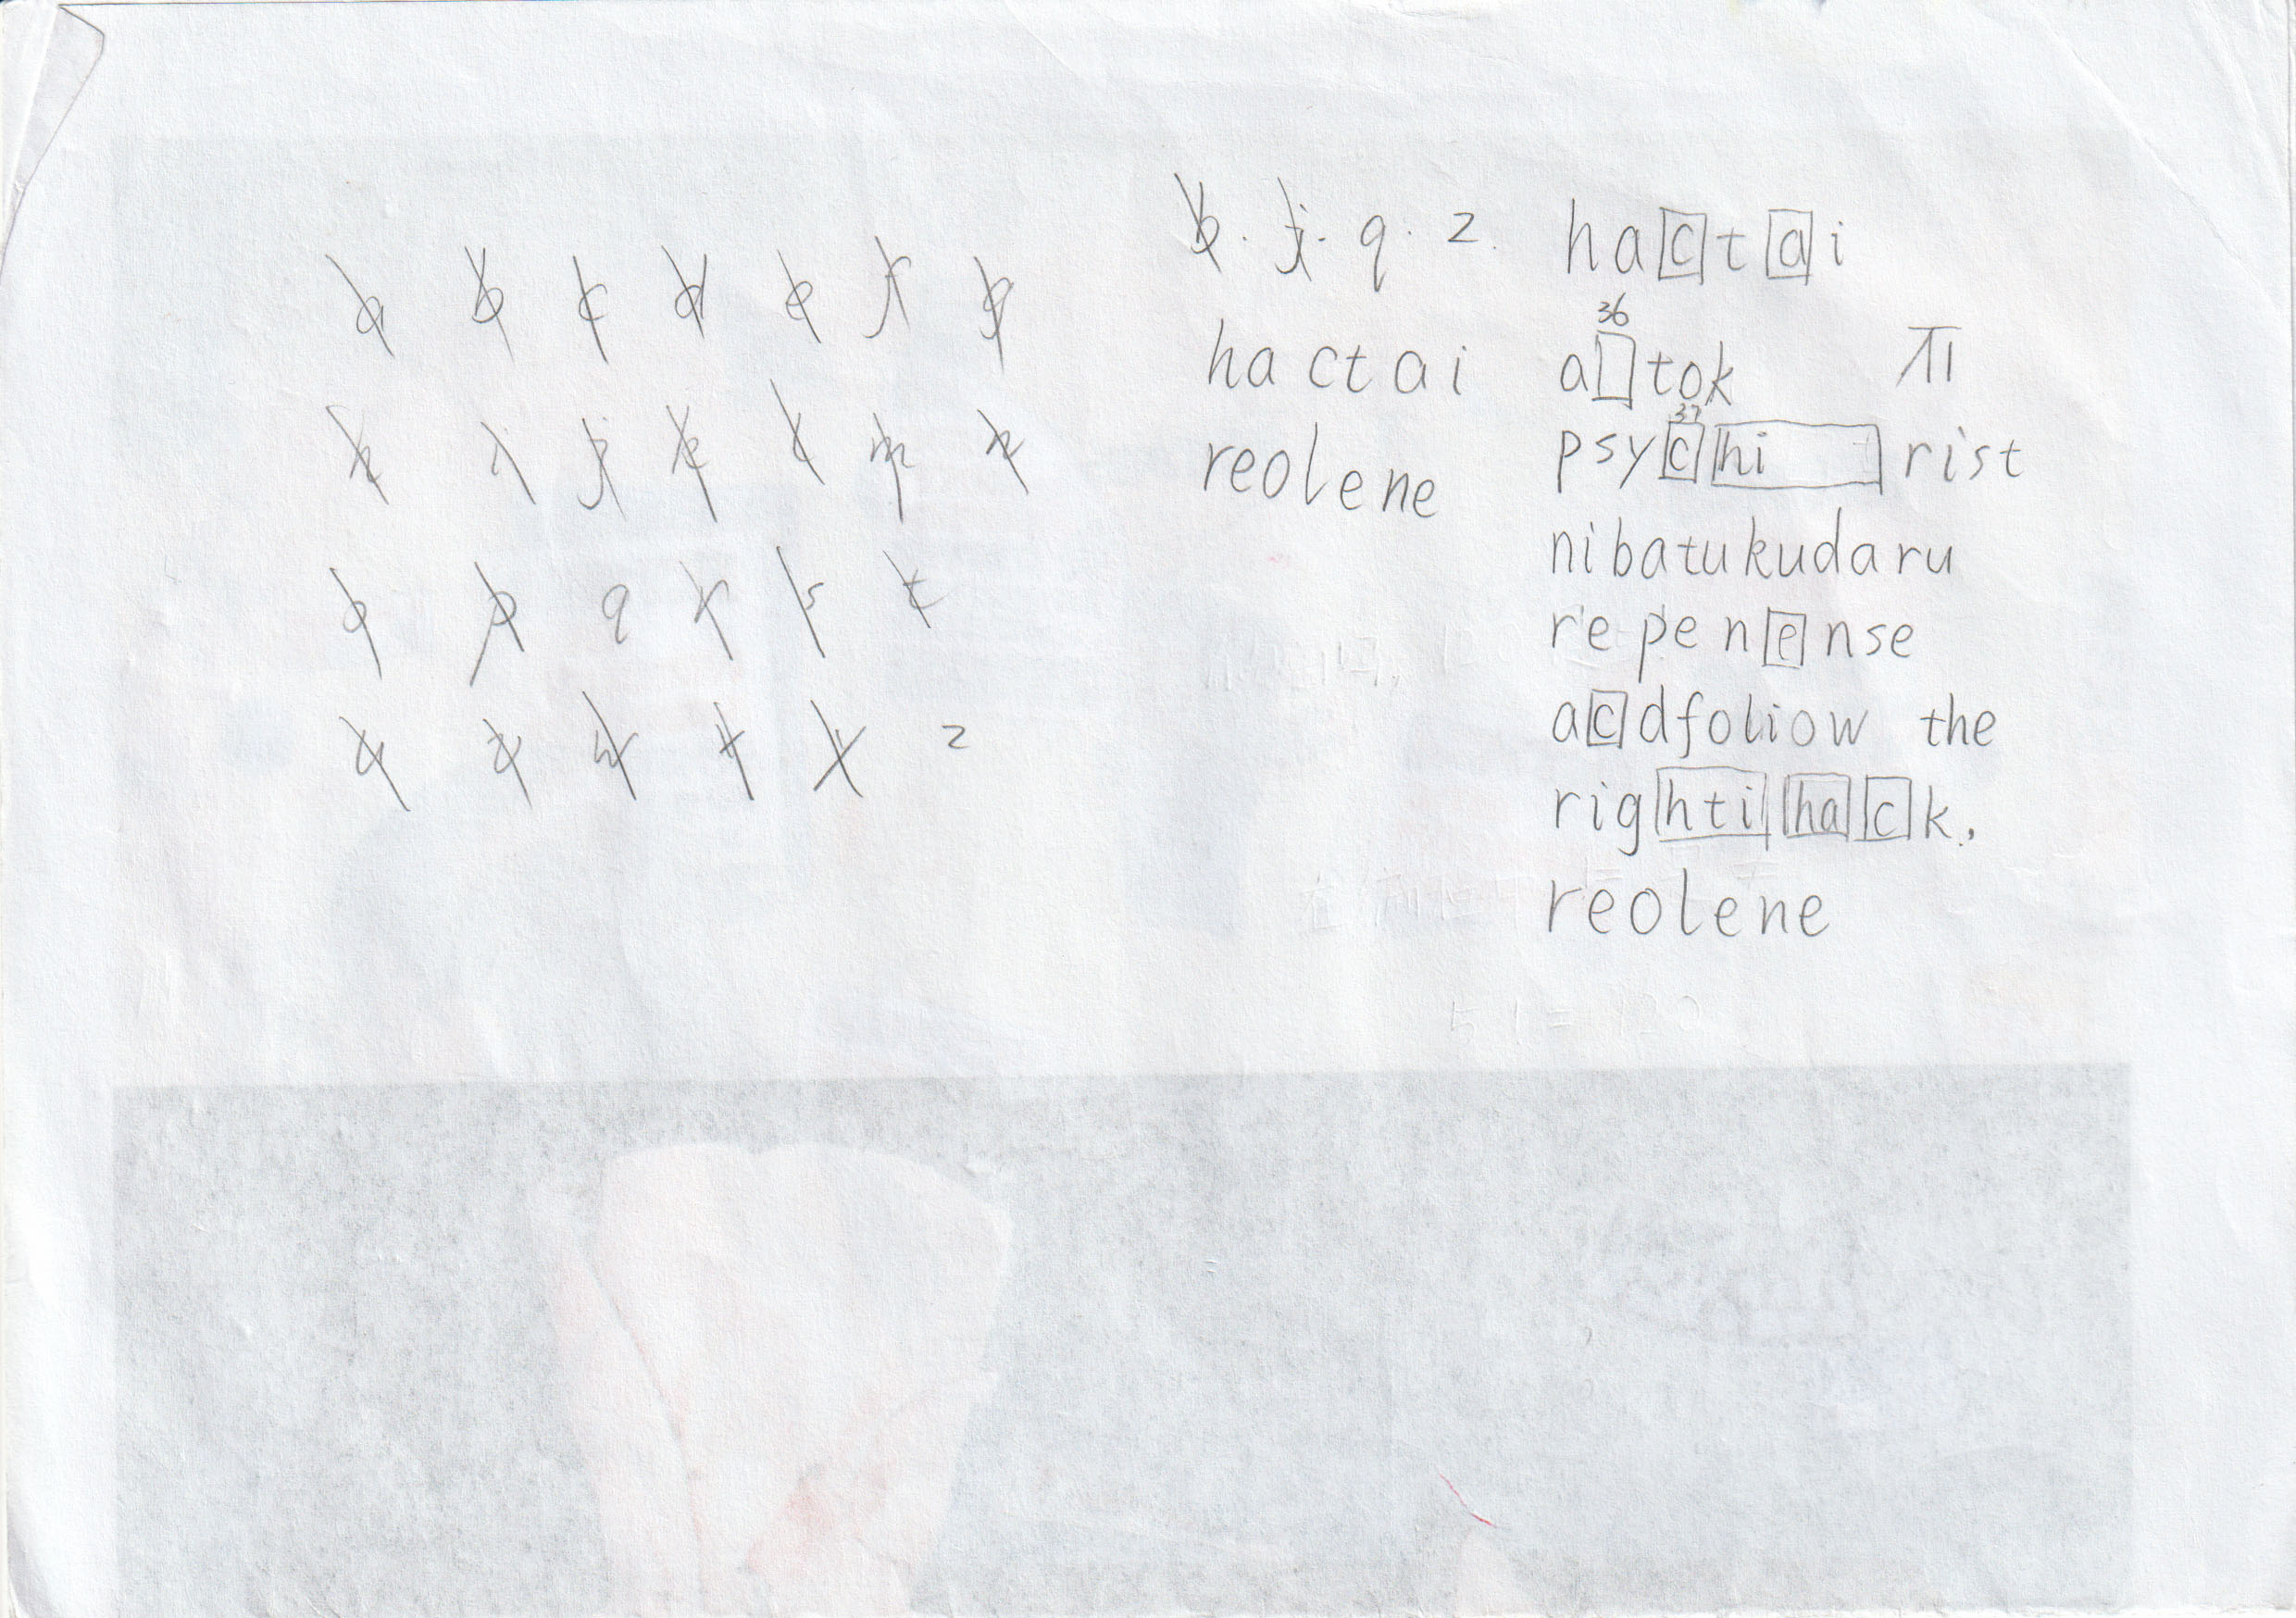 a b c d e f g
h i j k l m n
o p q r s t
u v w y x z
b. j. q. z.
hactai
reolene
hactai
36
atok
π
37
psychi rist
nibatukudaru
repenense
acdfoliow the
rightihack,
reolene